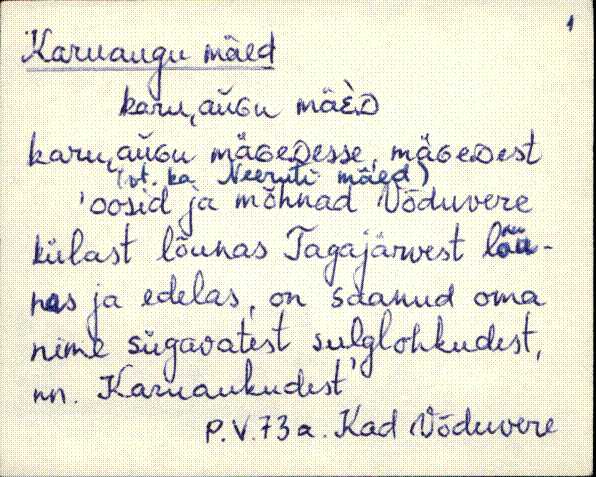 1
Karuaugu mäed
karu‿aùɢu mäè̀ᴅ
karu‿aùɢu mäɢeᴅesse, mäɢeᴅest
(vt. ka Neeruti mäed)
'oosid ja mõhnad Võduvere
külast lõunas Tagajärvest lõu-
nas ja edelas, on saanud oma
nime sügavatest sulglohkudest,
nn. Karuaukudest'
P.V.73 a. Kad Võduvere